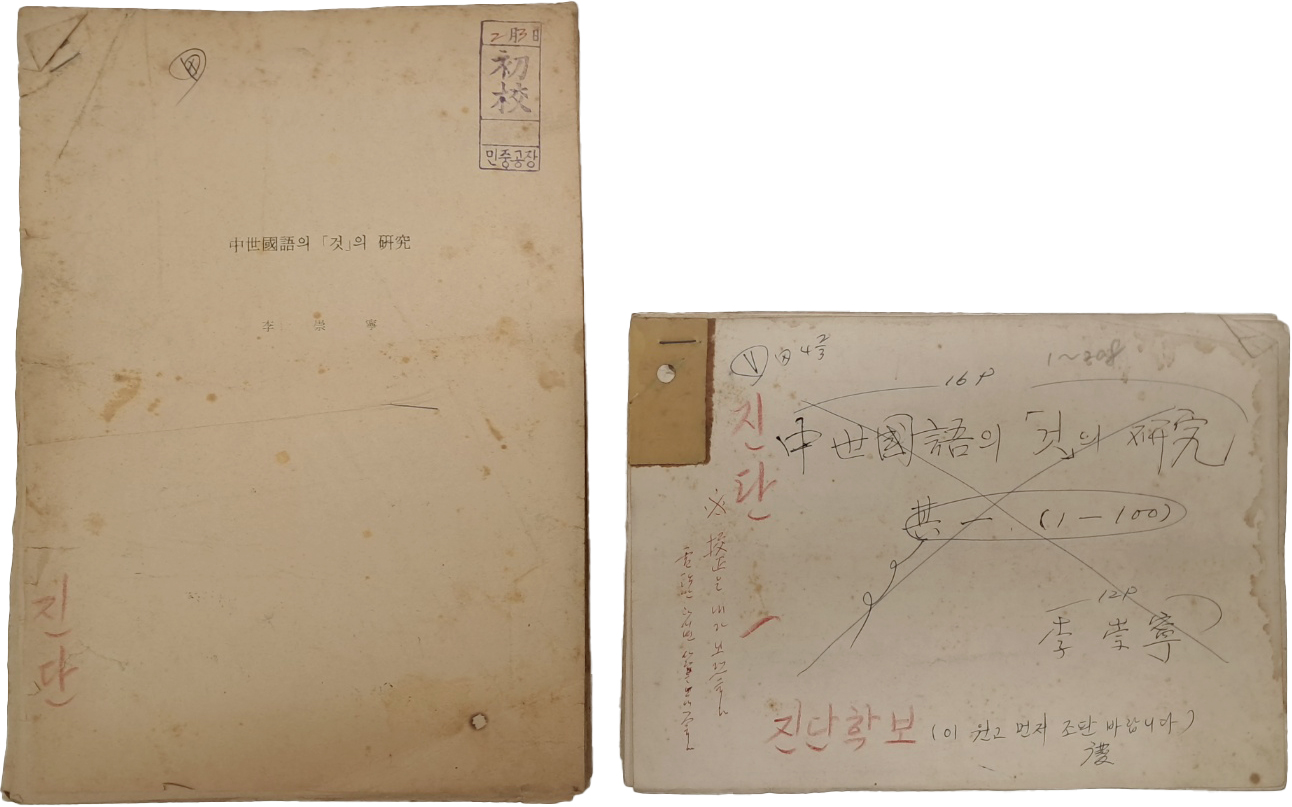 2月3日
初校
민중공장
中世國語의 「것」의 硏究
李 崇 寧
진단
V 4 2/3
1~208
16P
진단
中世國語의 「것」의 硏究
共一. (1—100)
※ 校正은 내가 보겠습니다
12P
李崇寧
진단학보 (이 원고 먼저 조판 바랍니다)